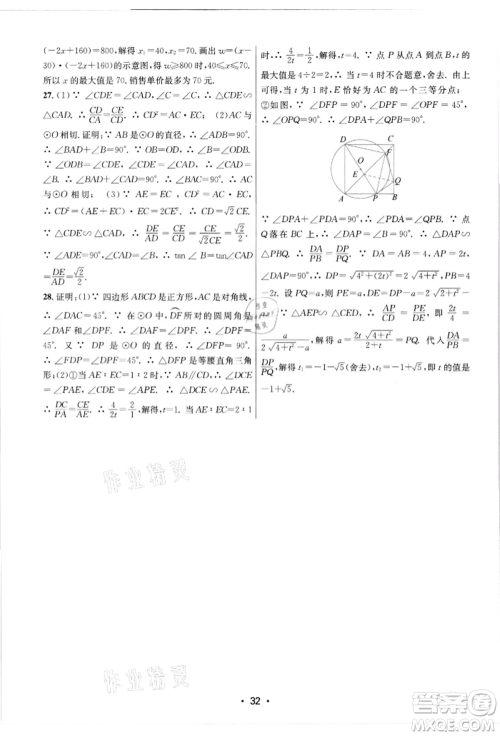 (-2x+160)=800,解得 x₁=40,x₂=70,画出 w=(x-
30)·(-2x+160)的示意图,得 w≥800时,40≤x≤70.
所以 x 的最大值是 70,销售单价最多为 70 元.
27.(1)∵ ∠CDE=∠CAD,∠C=∠C,∴ △CDE∽
△CAD. ∴ CD/CA=CE/CD. (2)AC 与⊙O
相切. 证明:∵ AB 是⊙O 的直径,∴ ∠ADB=90°.
∴ ∠BAD+∠B=90°. ∵ OB=OD,∴ ∠B=
∠ODB.
与⊙O 相切; (3)∵ AE=EC,∴ CD²=CE·
CA. ∴ CD²=CE(AE+CE)=2CE².
∵ △CDE∽△CAD,∴ DE/AD=CE/CD=CE/√2CE=√2/2. ∴
DE/AD=√2/2.
28. 证明:(1)∵ 四边形 ABCD 是正方形,AC 是对角线,
∴ ∠DAC=45°. ∵ 在⊙O 中,DF所对的圆周角是
∠DAF 和∠DPF,∴ ∠DAF=∠DPF. ∴ ∠DPF=
45°. ∵ ∠FDP=90°,∴ ∠DFP=∠DPF=
45°. ∴ DF=DP. ∴ △DFP 是等腰直角三角
形; (2)①当 AE∶EC=1∶2 时,∵ ∠DCE=
∠PAE,∠CDE=∠APE,∴ △DCE∽△PAE.
∴ DC/PA=CE/AE. ∴ 4/2t=2/1,解得,t=1. 当 AE∶EC=2∶1
时,4/2t=1/2,解得,t=4. ∵ 点 P 从点 A 到点 B,t 的
最大值是 4÷2=2,∴ 当 t=4 时不合题意,舍去. 由
此可得,当 t=1 时,E 恰好为 AC 的一个三等分点;
②如图,∵ ∠DPF=90°,∠DPF=∠OPF=45°,
D
C
F
E
Q
A
P
B
∴ ∠DPA+∠QPB=90°. ∵ ∠DPA+∠PDA=
90°,∴ ∠PDA=∠QPB. ∵ 点
Q 落在 BC 上,∴ ∠DAP=∠B=90°. ∴ △DAP∽
△PBQ. ∴ DA/PB=DP/PQ. ∵ DA=AB=4,AP=2t,
∠DAP=90°,∴ DP=√(4²+(2t)²)=2√(4+t²),PB=4-
2t. 设 PQ=a,则 PE=a,DE=DP-a=2√(4+t²)-
a. ∵ △AEP∽△CED,∴ AP/CD=PE/DE,即 2t/4=
a/(2√(4+t²)-a),解得 a=2t√(4+t²)/(t+2)=PQ. 代入 DA/PB=
DP/PQ,解得 t₁=-1-√5(舍去),t₂=-1+√5,即 t 的值是
-1+√5.
作业精灵
作业精灵
· 32 ·
答案圈
MXQE.COM